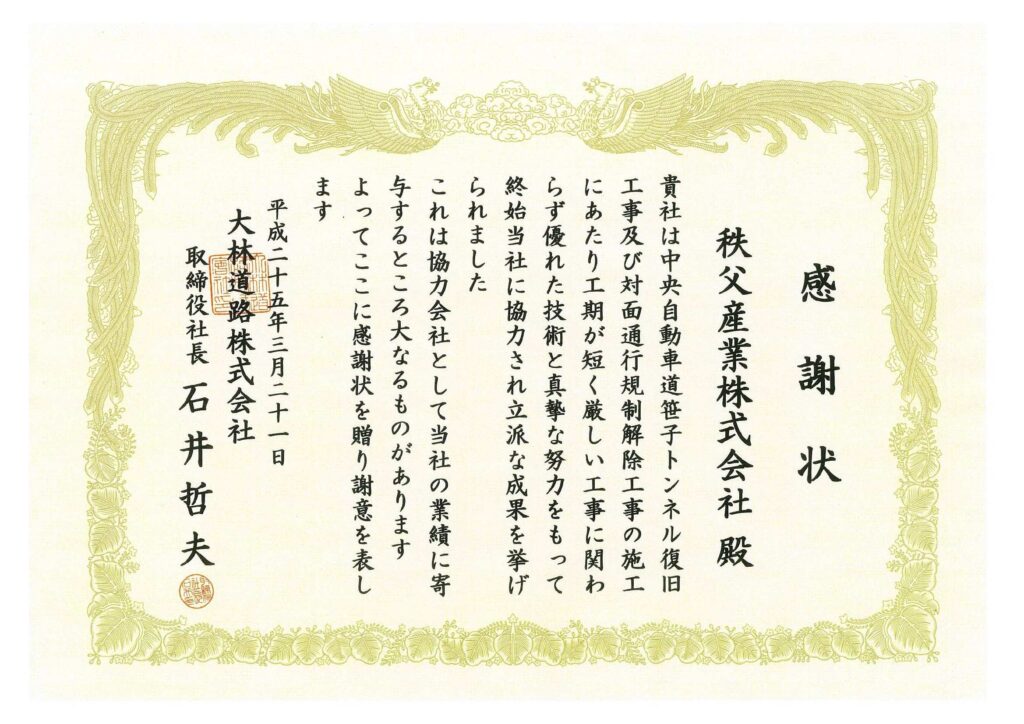 感謝状
秩父産業株式会社 殿
貴社は中央自動車道笹子トンネル復旧
工事及び対面通行規制解除工事の施工
にあたり工期が短く厳しい工事に関わ
らず優れた技術と真摯な努力をもって
終始当社に協力され立派な成果を挙げ
られました
これは協力会社として当社の業績に寄
与するところ大なるものがあります
よってここに感謝状を贈り謝意を表し
ます
平成二十五年三月二十一日
大林道路株式会社
取締役社長 石井哲夫